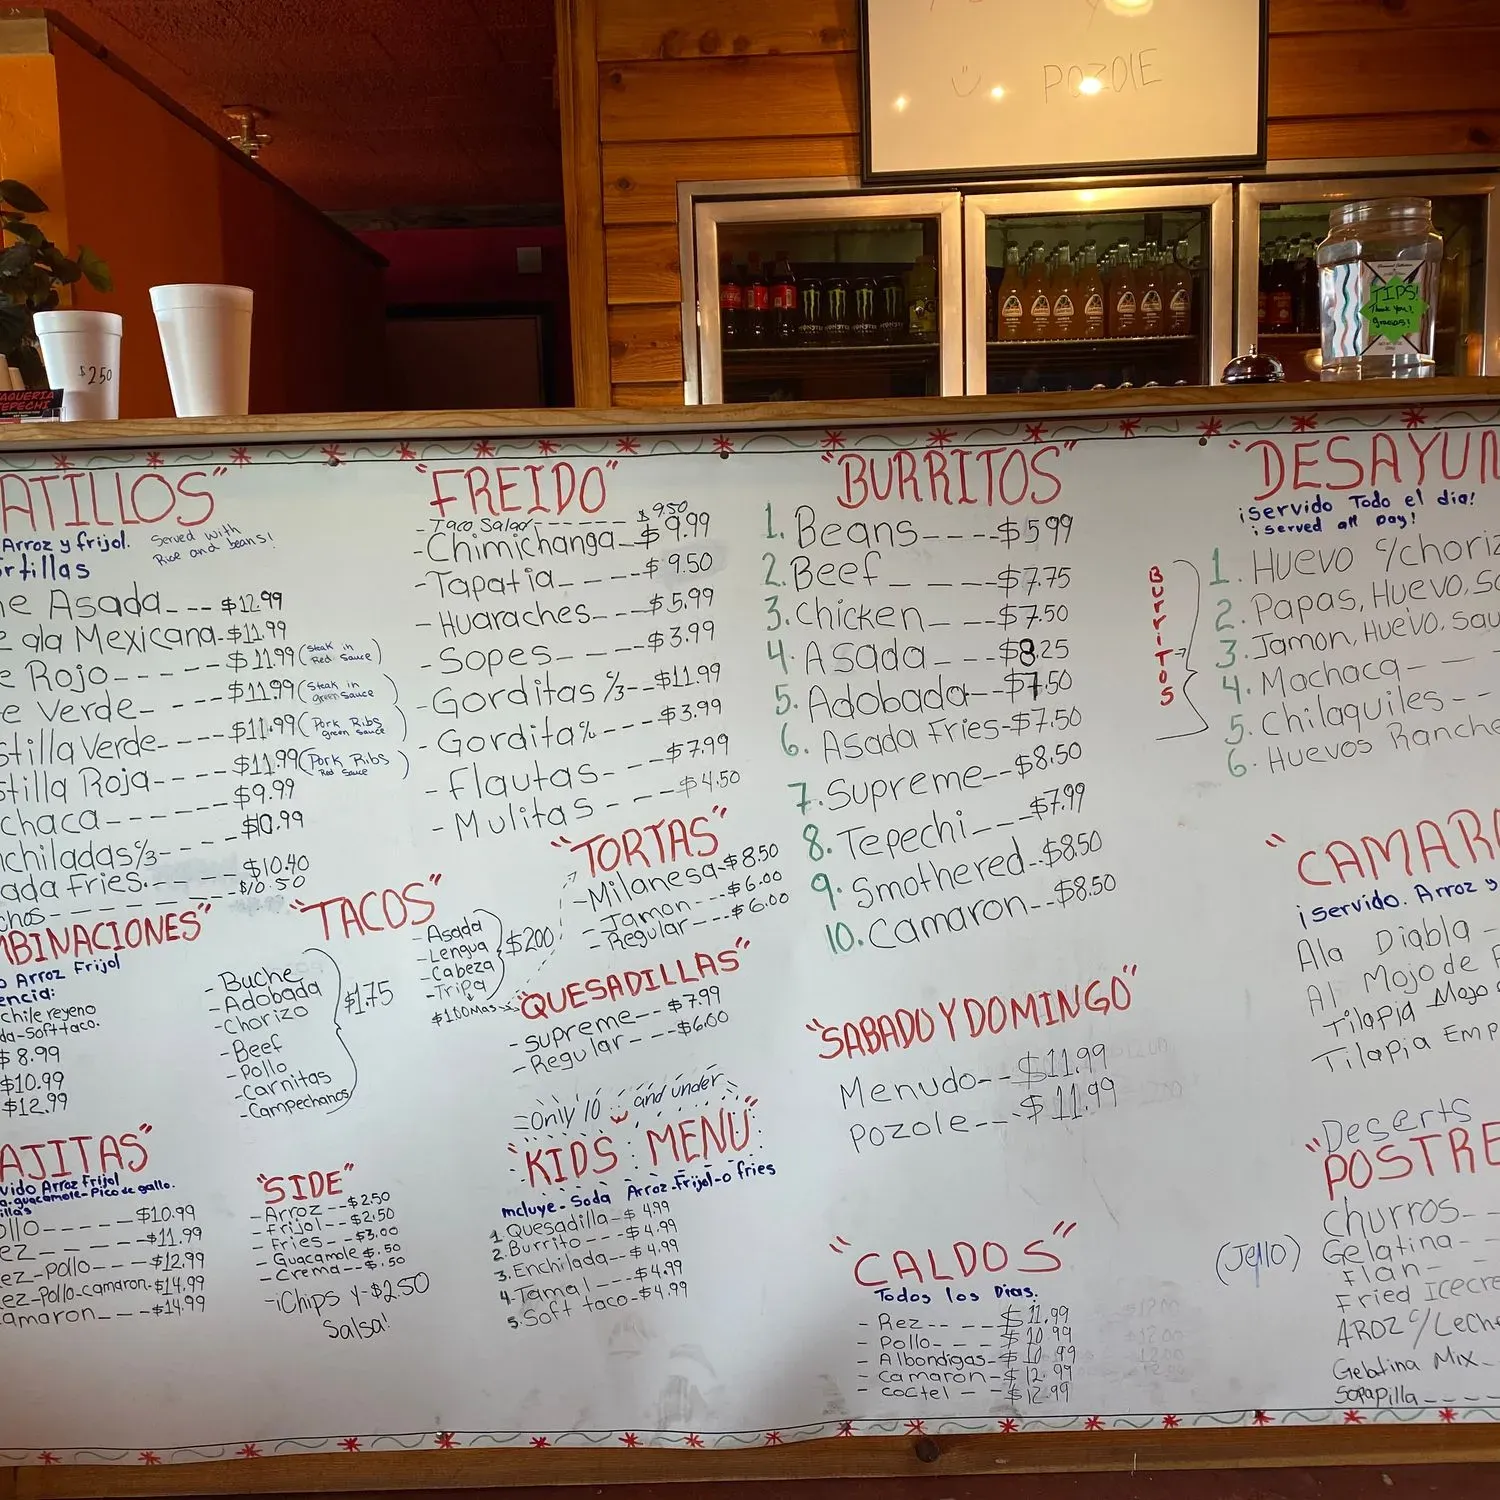 POZOLE
$2.50
TAQUERIA
TEPECHI
TIPS!
Thank you!
Gracias!
ATILLOS"
Arroz y frijol.
Served with
Rice and beans!
rtillas
ne Asada--- $12.99
e ala Mexicana-$11.99
e Rojo---- --$11.99 (Steak in
Red Sauce)
e Verde- --- $11.99 (Steak in
green Sauce)
stilla Verde----$11.99 (Pork Ribs
green sauce)
stilla Roja-----$11.99 (Pork Ribs
Red Sauce)
chaca------$9.99
nchiladas c/3----$10.99
ada Fries.-----$10.40
chos---------$10.50
MBINACIONES"
o Arroz Frijol
encia:
chile reyeno
da-Soft taco.
$8.99
$10.99
$12.99
AJITAS"
vido Arroz Frijol
a-guacamole-Pico de gallo.
illas
ollo-----$10.99
ez------$11.99
ez-pollo---$12.99
ez-pollo-camaron-$14.99
amaron-----$14.99
"TACOS"
- Buche
- Adobada
- Chorizo
- Beef
- Pollo
- Carnitas
- Campechanos
$1.75
- Asada
- Lengua
- Cabeza
- Tripa
$200
$1.00 Mas
"SIDE"
- Arroz--$2.50
- Frijol--$2.50
- Fries--$3.00
- Guacamole $.50
- Crema--$.50
-¡Chips y-$2.50
Salsa!
"FREIDO"
- Taco Salad------$9.50
- Chimichanga-$9.99
- Tapatia----$9.50
- Huaraches---$5.99
- Sopes----$3.99
- Gorditas c/3--$11.99
- Gordita%--$3.99
- Flautas---$7.99
- Mulitas---$4.50
"TORTAS"
- Milanesa-$8.50
- Jamon---$6.00
- Regular---$6.00
"QUESADILLAS"
- supreme--$7.99
- Regular---$6.00
Only 10 and under
"KIDS MENU"
Incluye- Soda Arroz-Frijol-o fries
1 Quesadilla-$4.99
2. Burrito---$4.99
3. Enchilada--$4.99
4. Tamal ----$4.99
5. Soft taco-$4.99
"BURRITOS"
1. Beans----$5.99
2. Beef- ---$7.75
3. Chicken---$7.50
4. Asada---$8.25
5. Adobada--$7.50
6. Asada Fries-$7.50
7. Supreme--$8.50
8. Tepechi---$7.99
9. Smothered--$8.50
10. Camaron--$8.50
"SABADO Y DOMINGO"
Menudo--$11.99
Pozole---$11.99
"CALDOS"
Todos los Dias.
- Rez---- $11.99
- Pollo--- $10.99
- Albondigas-$10.99
- camaron--$12.99
- coctel - -$12.99
"DESAYUN
¡servido Todo el dia!
¡served all Day!
Burritos
1. Huevo c/choriz
2. Papas, Huevo,
3. Jamon, Huevo,
4. Machaca---
5. Chilaquiles--
6. Huevos Ranche
"CAMAR
¡servido. Arroz y
Ala Diabla-
Al Mojo de
Tilapia Mojo
Tilapia Emp
Deserts
"POSTRE
Churros--
(Jello) Gelatina--
Flan--
Fried Icecre
AROZ c/Leche
Gelatina Mix--
Sopapilla----